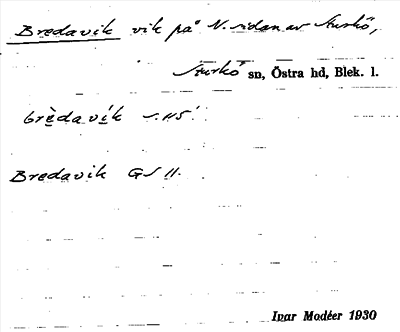 Bredavik vik på N. sidan av Sturkö,
Sturkö sn, Östra hd, Blek. l.
brèdavík
Bredavik GS 11.
Ivar Modéer 1930